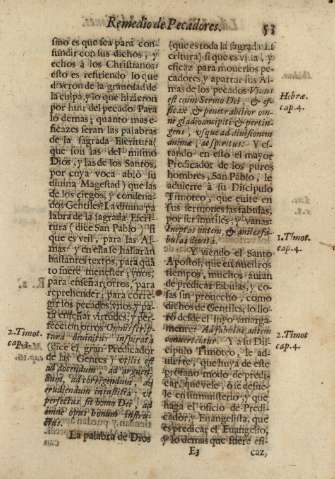 Remedio de Pecadores.
53
sino es que sea para con-
fundir con sus dichos, y
echos à los Christianos:
esto es refiriendo lo que
dixeron de la gravedad de
la culpa, y lo que hizieron
por huir del pecado. Para
lo demas; quanto mas e-
ficazes seran las palabras
de la sagrada Escritura,
que son las del mismo
Dios, y las de los Santos,
por cuya voca abló su
divina Magestad) que las
de los ciegos, y condena-
dos Gentiles! La divina pa-
labra de la sagrada Escri-
tura (dice San Pablo) si
que es util, para las Al-
mas: y en ella se hallaràn
bastantes textos, para quã
to fuere menester; y nos;
para enseñar otros, para
reprehender; para corre-
gir los pecados, vicios, y pa-
ra enseñar virtudes, y per-
feccion, otros Omnis scrip-
tura divinitus inspirata
(dice el gran Predicador
de las Gentes) utilis est
ad docendum, ad arguen-
dum, ad corrigendum, ad
erudiendum in iustitia, ut
perfectus sit homo Dei, ad
omne opus bonum instru-
ctus.
La palabra de Dios
2.Timot.
cap.3.
(que es toda la sagrada Es-
critura) si que es viva, y
eficaz para mover los pe-
cadores, y apartar sus Al-
mas de los pecados Vivus
est enim Sermo Dei, & ef-
ficax & penetrabilior omni
gladio ancipiti & pertin-
gens, usque ad divisionem
animæ, ac spiritus: Y es-
tando en esto el mayor
Predicador de los puros
hombres, San Pablo, le
advierte à su Discipulo
Timoteo, que evite en
sus sermones las fabulas,
por ser inutiles, y vanas:
Ineptas autem & aniles fa-
bulas devita.
Y viendo el Santo
Apostol, que en nuestros
tiempos, muchos avian
de predicar fabulas, y co-
sas sin provecho, como
dichos de Gentiles, lo llo-
rò desde el suyo amarga-
mente: Ad fabulas autem
convertentur. Y à su Dis-
cipulo Timoteo, le ad-
vierte, que huya de este
profano modo de predi-
car, que vele, ò se desve-
le en su ministerio, y que
haga el oficio de Predi-
cador, y Evangelista, que
es predicar el Evangelio,
y lo demas que fuere efi-
Hebræ.
cap.4.
1.Timot.
cap.4.
2.Timot
cap.4.
E3
caz,